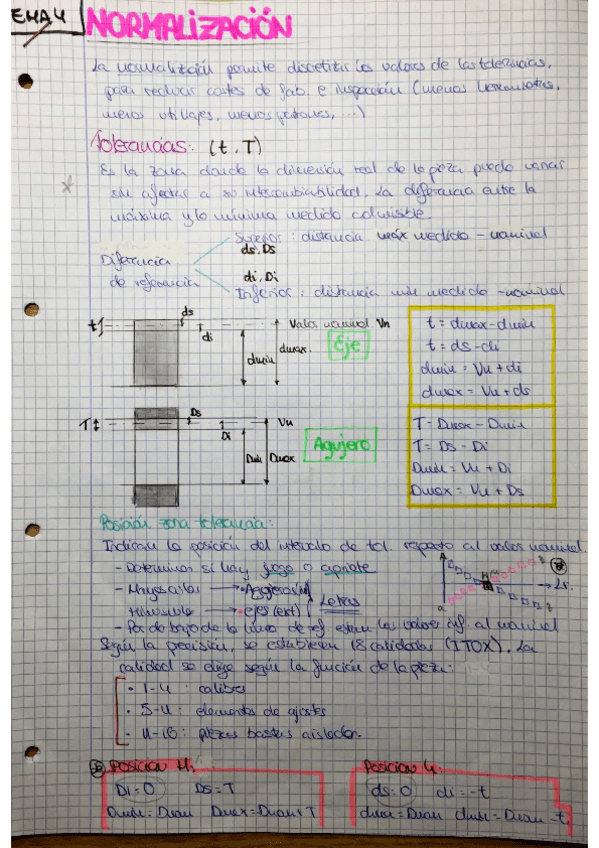 EMA 4
NORMALIZACIÓN
La normalización permite discretizar los valores de las tolerancias,
para reducir costes de fab. e inspección (menos herramientas,
menos utillajes, menos patrones, ...)
Tolerancias: (t, T)
Es la zona donde la dimensión real de la pieza puede variar
sin afectar a su intercambiabilidad. La diferencia entre la
máxima y la mínima medida admisible.
Superior: distancia máx medido - nominal
ds, Ds
Diferencia
de referencia
di, Di
Inferior: distancia mín medido - nominal
t
ds
di
Valor nominal Vn
dmin
dmax.
Eje
t = dmax - dmin
t = ds - di
dmin = Vn + di
dmax = Vn + ds
T
Ds
Di
Vn
Dmin
Dmax
Agujero
T = Dmax - Dmin
T = Ds - Di
Dmin = Vn + Di
Dmax = Vn + Ds
Posición zona tolerancia:
Indican la posición del intervalo de tol. respecto al valor nominal
- Determinan si hay juego o apriete
- Mayúsculas → Agujeros
→ ejes (ext)
Letras
- Por debajo de la línea de ref están los valores inf. al nominal
Según la precisión, se establecen 18 calidades (ITOX). La
calidad se elige según la función de la pieza:
· 1-4: calibres
· 5-11: elementos de ajustes
· 11-18: piezas bastas aisladas.
Posición H:
Di = 0 Ds = T
Dmin = Dnom Dmax = Dnom + T
Posición h:
ds = 0 di = -t
dmax = Dnom dmin = Dnom - t